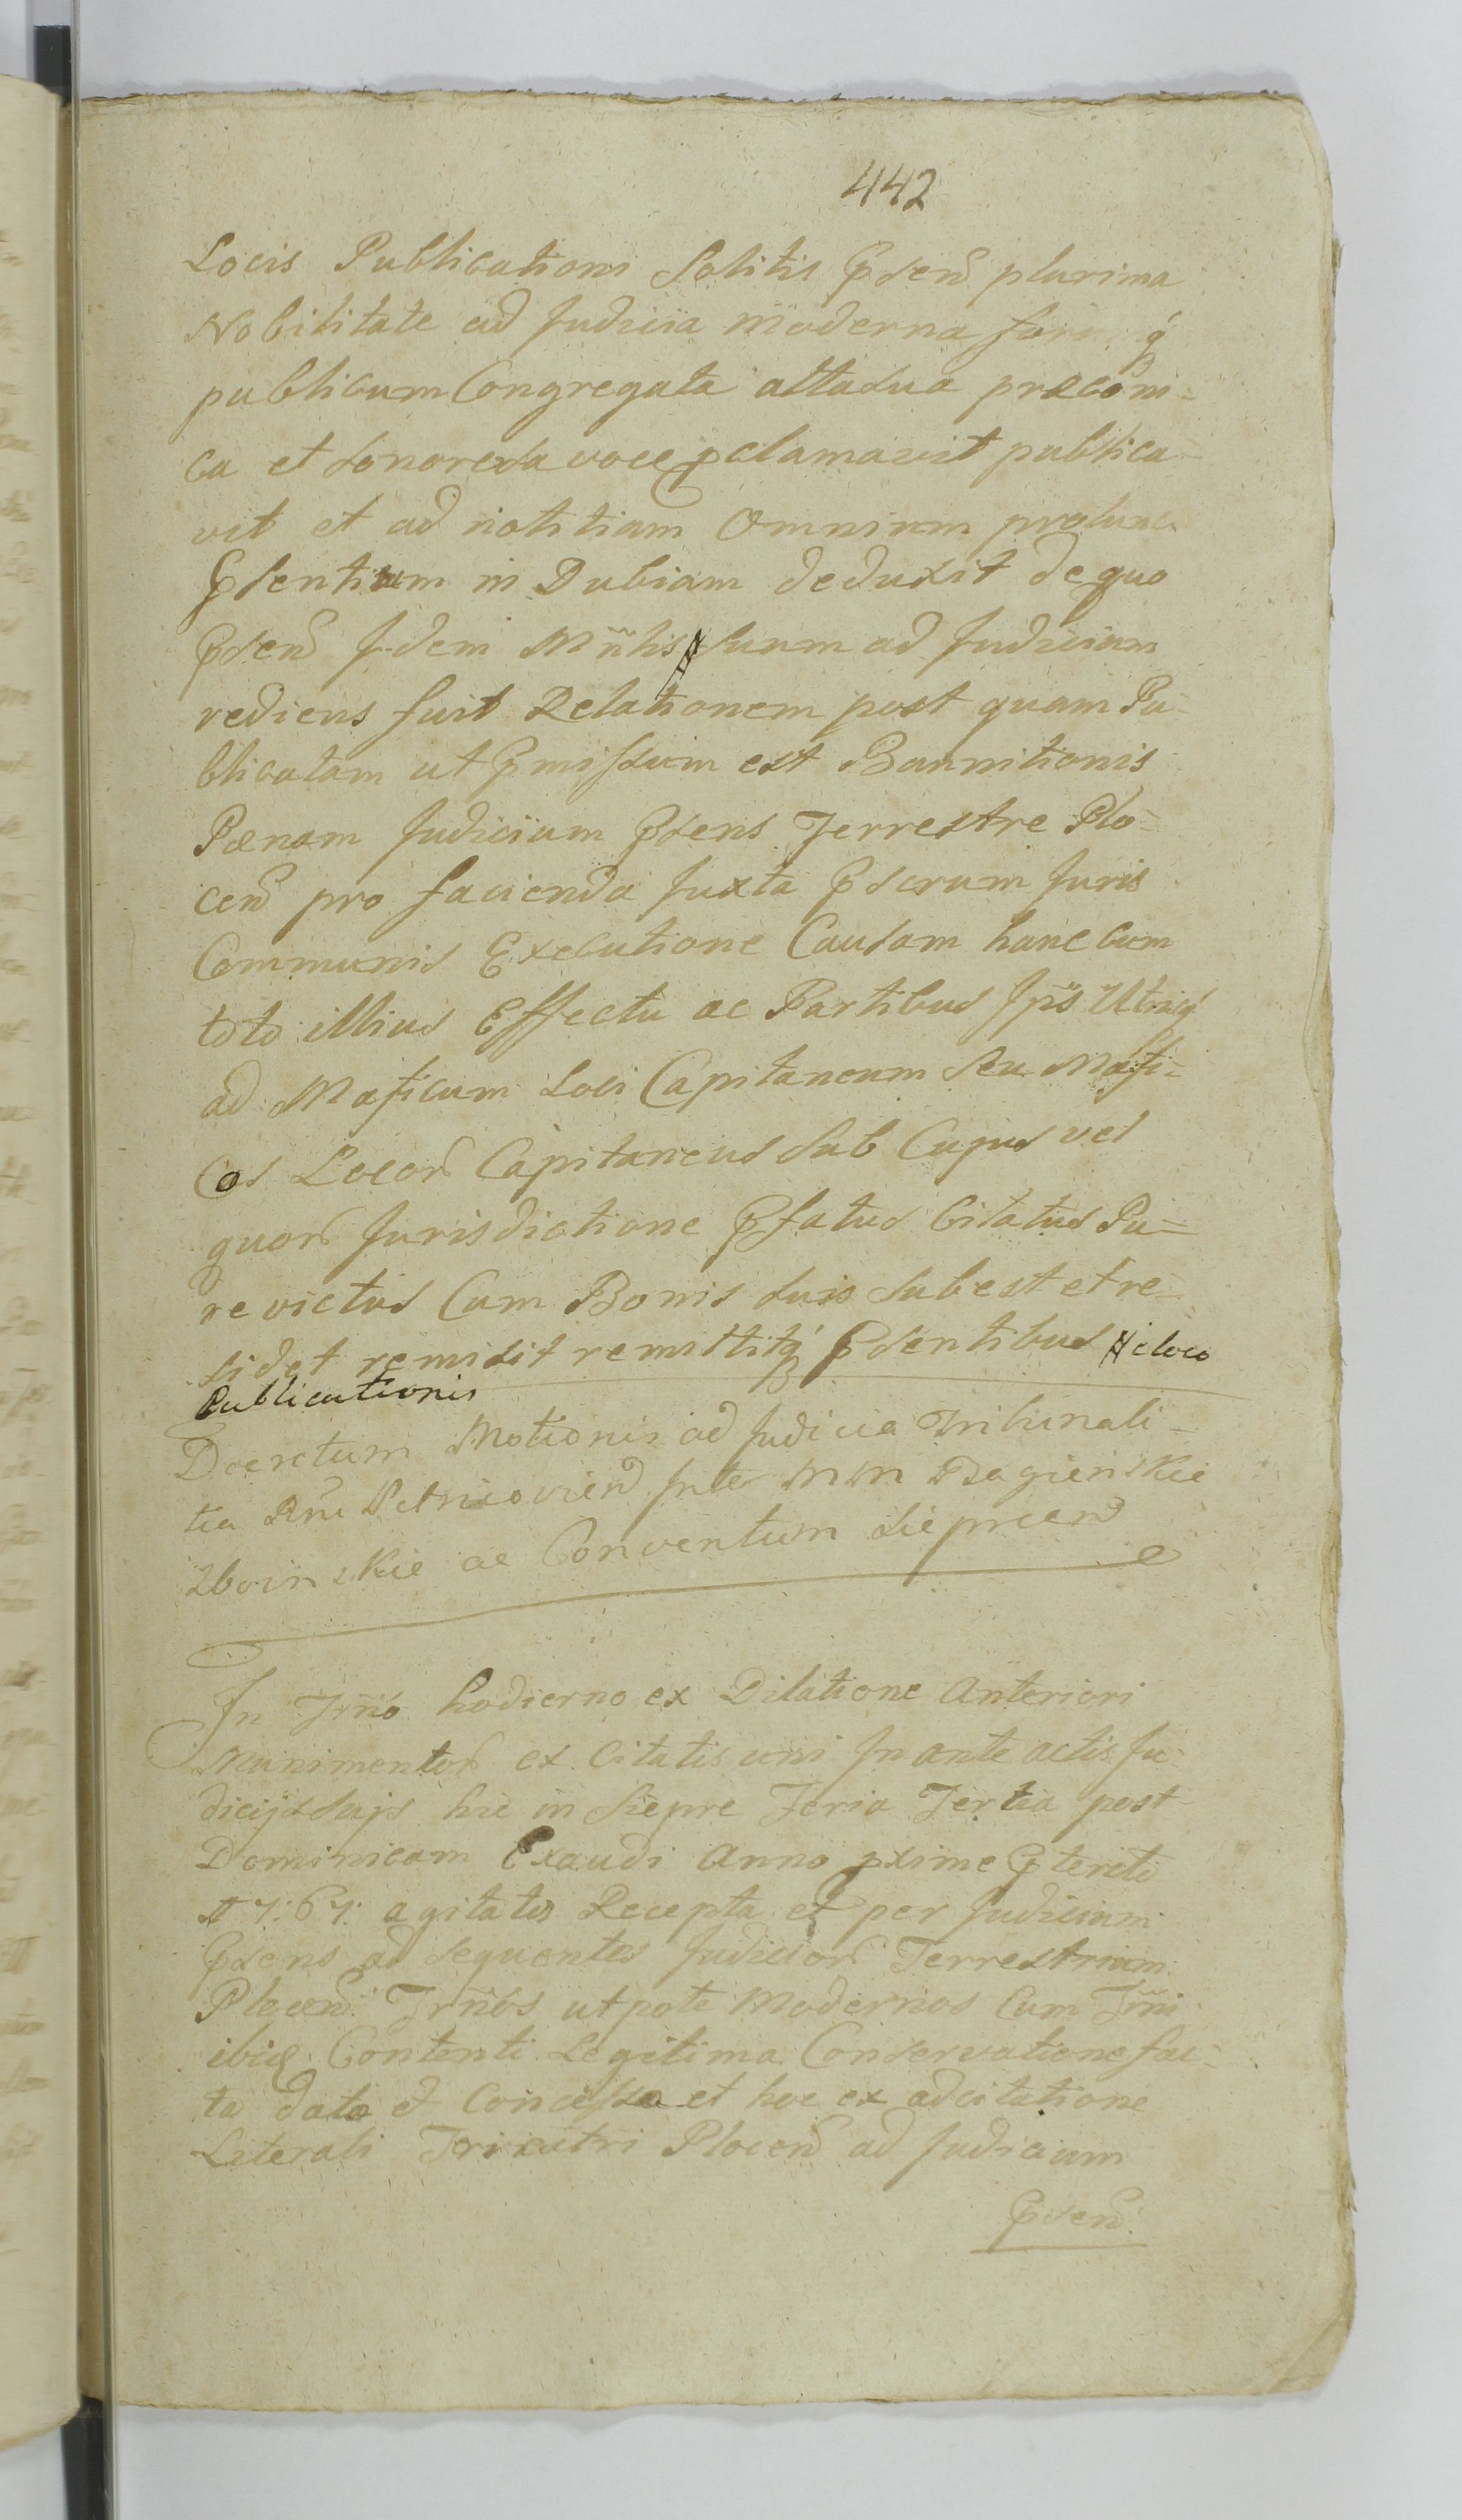 442
Locis Publicationi Solitis Pſenđ plurima
Nobilitate ad Judicia moderna forū q́
publicum Congregata alta sua præconi=
ca et sonorosa voce pclamavit publica-
vit et ad notitiam Omnium protunc
Pſentium in Dubiam deduxit de quo
Pſenđ Idem Mñlis suum ad Judicium
rediens fuit Relationem post quam Pu-
blicatam ut Pmiſsum est Bannitionis
Pœnam Judicium Pſens Terrestre Plo-
cenđ pro facienda Juxta Pſcrum Juris
Communis Executione Causam hanc cum
toto illius Effectu ac Partibus Jp̃s Utriq́
ad Mağficum Loci Capitaneum seu Mağfi=
cos Locorđ Capitaneus sub Cujus vel
quorđ Jurisdictione Pfatus Citatus Pu=
re victus Cum Bonis suis subest et re-
sidet remisit remittitq́ Pſentibus # e loco
Publicationis
Decretum Motionis ad Judicia Tribunali-
tia Rñi Petricovienđ Inter MM Bagienskie
Zboinskie ac Conventum Sieprcenđ
In Trñó hodierno ex Dilatione Anteriori
Munimentorđ ex Citatis uni In ante actis Ju-
dicijs suis hic in Siepre Feria Tertia post
Dominicam Exaudi Anno pxime Pterito
1767: agitatis Recepta et per Judicium
Pſens ad sequentes Judiciorđ Terrestrium
Plocenđ Trñós utpote Modernos Cum Trñi
ibiq Contenti Legitima Conservatione fac-
ta data et Conceſsa et hoc ex adcitatione
Literali Terrestri Plocenđ ad Judicium
Pſenđ: